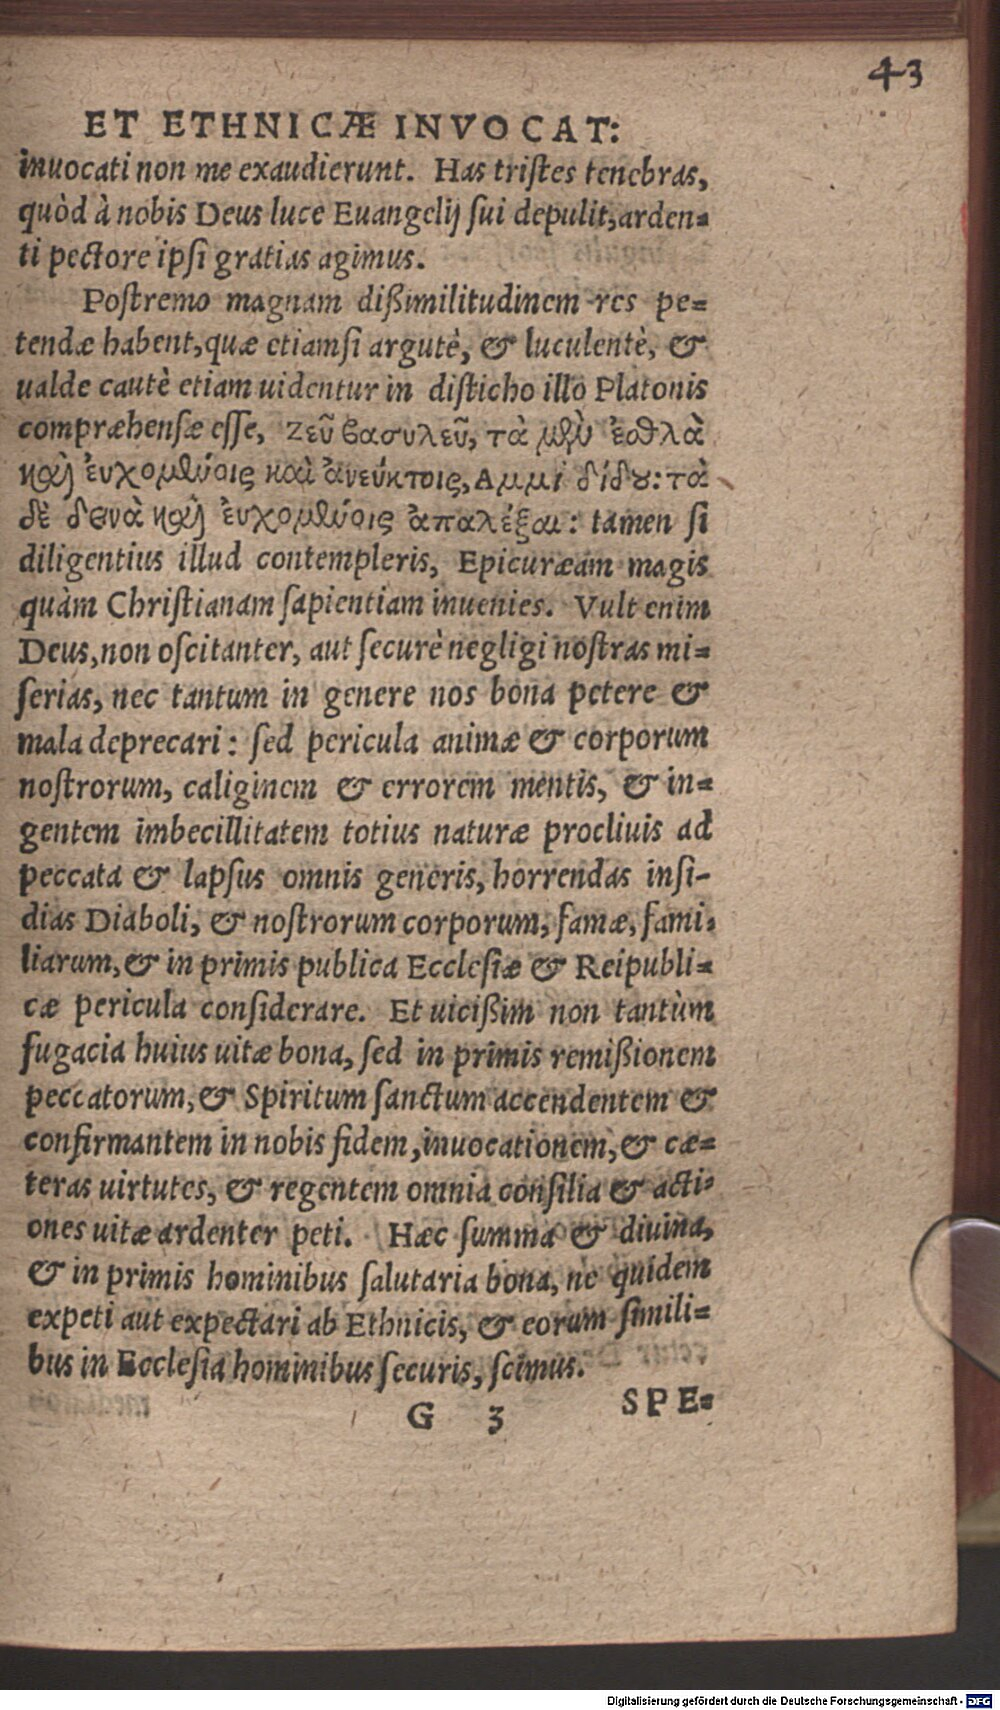 43
ET ETHNICÆ INVOCAT:
inuocati non me exaudierunt. Has tristes tenebras,
quòd à nobis Deus luce Euangelij sui depulit, arden=
ti pectore ipsi gratias agimus.
Postremo magnam dißimilitudinem res pe=
tendæ habent, quæ etiamsi argutè, & luculentè, &
ualde cautè etiam uidentur in disticho illo Platonis
compræhensæ esse, Ζεῦ βασυλεῦ, τὰ μὲν ἐσθλὰ
καὶ ἐυχομένοις καὶ ἀνεύκτοις, Αμμι δίδου: τὰ
δὲ δεινὰ καὶ ἐυχομένοις ἀπαλέξαι: tamen si
diligentius illud contempleris, Epicuræam magis
quàm Christianam sapientiam inuenies. Vult enim
Deus, non oscitanter, aut securè negligi nostras mi=
serias, nec tantum in genere nos bona petere &
mala deprecari: sed pericula animæ & corporum
nostrorum, caliginem & errorem mentis, & in=
gentem imbecillitatem totius naturæ procliuis ad
peccata & lapsus omnis generis, horrendas insi-
dias Diaboli, & nostrorum corporum, famæ, fami=
liarum, & in primis publica Ecclesiæ & Reipubli=
cæ pericula considerare. Et uicißim non tantùm
fugacia huius uitæ bona, sed in primis remißionem
peccatorum, & Spiritum sanctum accendentem &
confirmantem in nobis fidem, inuocationem, & cæ=
teras uirtutes, & regentem omnia consilia & acti=
ones uitæ ardenter peti. Hæc summa & diuina,
& in primis hominibus salutaria bona, ne quidem
expeti aut expectari ab Ethnicis, & eorum simili=
bus in Ecclesia hominibus securis, scimus.
G 3 SPE=
Digitalisierung gefördert durch die Deutsche Forschungsgemeinschaft - DFG